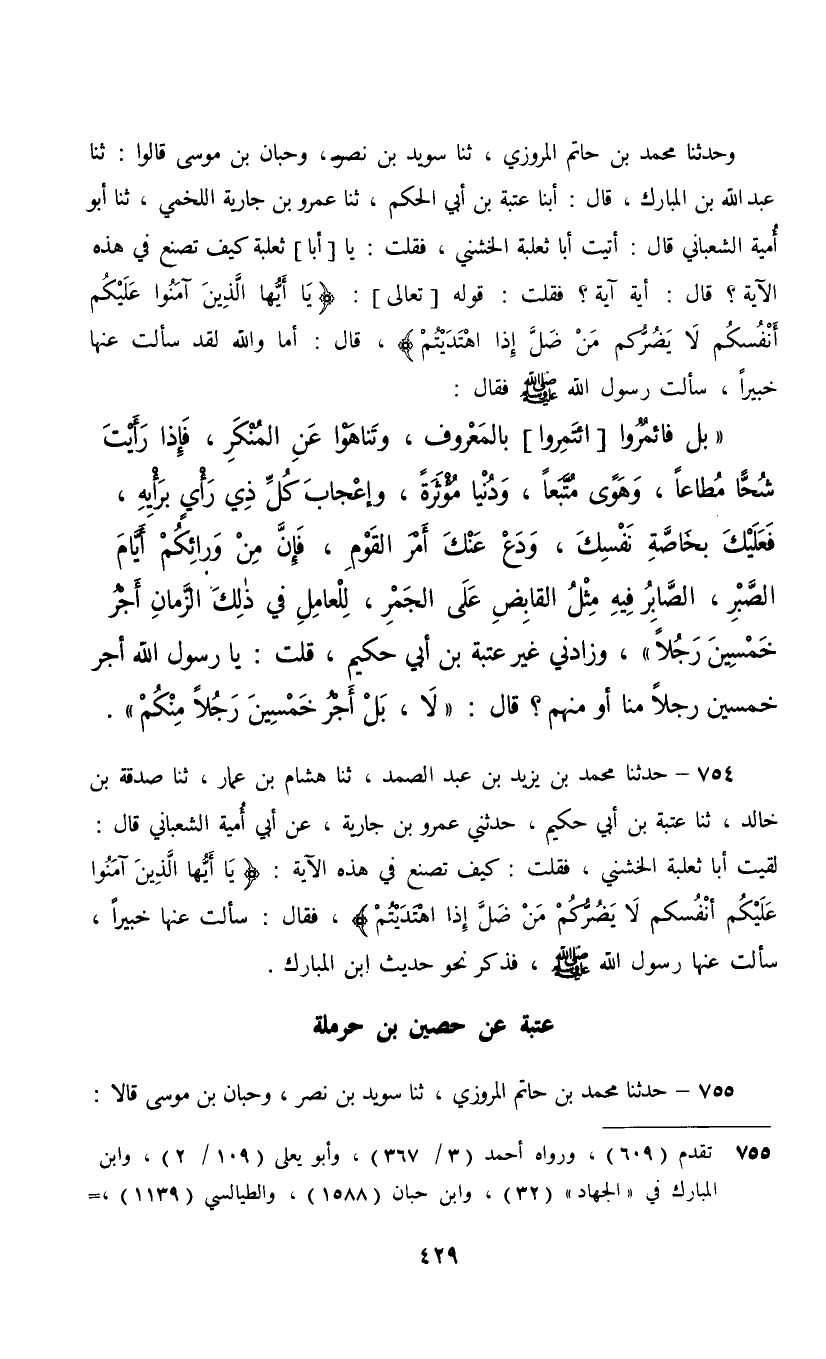 وحدثنا محمد بن حاتم المروزي ، ثنا سويد بن نصر، وحبان بن موسى قالوا : ثنا
عبد الله بن المبارك ، قال : أبنا عتبة بن أبي الحكم ، ثنا عمرو بن جارية اللخمي ، ثنا أبو
أُمية الشعباني قال : أتيت أبا ثعلبة الخشني ، فقلت : يا [ أبا ] ثعلبة كيف تصنع في هذه
الآية ؟ قال : أية آية ؟ فقلت : قوله [ تعالى ] : ﴿ يَا أَيُّها الَّذِينَ آمَنُوا عَلَيْكُم
أَنْفُسكُم لَا يَضُرُّكم مَنْ ضَلَّ إذا اهْتَدَيْتُمْ ﴾ ، قال : أما والله لقد سألت عنها
خبيراً ، سألت رسول الله ﷺ فقال :
« بل فائمُرُوا [ ائتَمِروا ] بالمَعْروف ، وتَناهَوْا عَنِ المُنْكَرِ ، فَإذا رَأَيْتَ
شُحًّا مُطاعاً ، وَهَوًى مُتَّبَعاً ، وَدُنْيا مُؤْثَرَةً ، وإعْجابَ كُلِّ ذِي رَأْيٍ برَأْيِهِ ،
فَعَلَيْكَ بخَاصَّةِ نَفْسِكَ ، وَدَعْ عَنْكَ أَمْرَ القَوْمِ ، فَإنَّ مِنْ وَرائِكُمْ أَيَّامَ
الصَّبْرِ ، الصَّابرُ فِيهِ مِثْلُ القابِضِ عَلَى الجَمْرِ ، لِلْعامِلِ في ذٰلِكَ الزَّمانِ أَجْرُ
خَمْسِينَ رَجُلاً » ، وزادني غير عتبة بن أبي حكيم ، قلت : يا رسول الله أجر
خمسين رجلاً منا أو منهم ؟ قال : « لَا ، بَلْ أَجْرُ خَمْسِينَ رَجُلاً مِنْكُمْ » .
٧٥٤ – حدثنا محمد بن يزيد بن عبد الصمد ، ثنا هشام بن عمار ، ثنا صدقة بن
خالد ، ثنا عتبة بن أبي حكيم ، حدثني عمرو بن جارية ، عن أبي أُمية الشعباني قال :
لقيت أبا ثعلبة الخشني ، فقلت : كيف تصنع في هذه الآية : ﴿ يَا أَيُّها الَّذِينَ آمَنُوا
عَلَيْكُم أنْفُسكم لَا يَضُرُّكُمْ مَنْ ضَلَّ إذا اهْتَدَيْتُمْ ﴾ ، فقال : سألت عنها خبيراً ،
سألت عنها رسول الله ﷺ ، فذكر نحو حديث ابن المبارك .
عتبة عن حصين بن حرملة
٧٥٥ – حدثنا محمد بن حاتم المروزي ، ثنا سويد بن نصر ، وحبان بن موسى قالا :
٧٥٥ تقدم ( ٦٠٩ ) ، ورواه أحمد ( ٣ / ٣٦٧ ) ، وأبو يعلى ( ١٠٩ / ٢ ) ، وابن
المبارك في « الجهاد » ( ٣٢ ) ، وابن حبان ( ١٥٨٨ ) ، والطيالسي ( ١١٣٩ ) ،=
٤٢٩